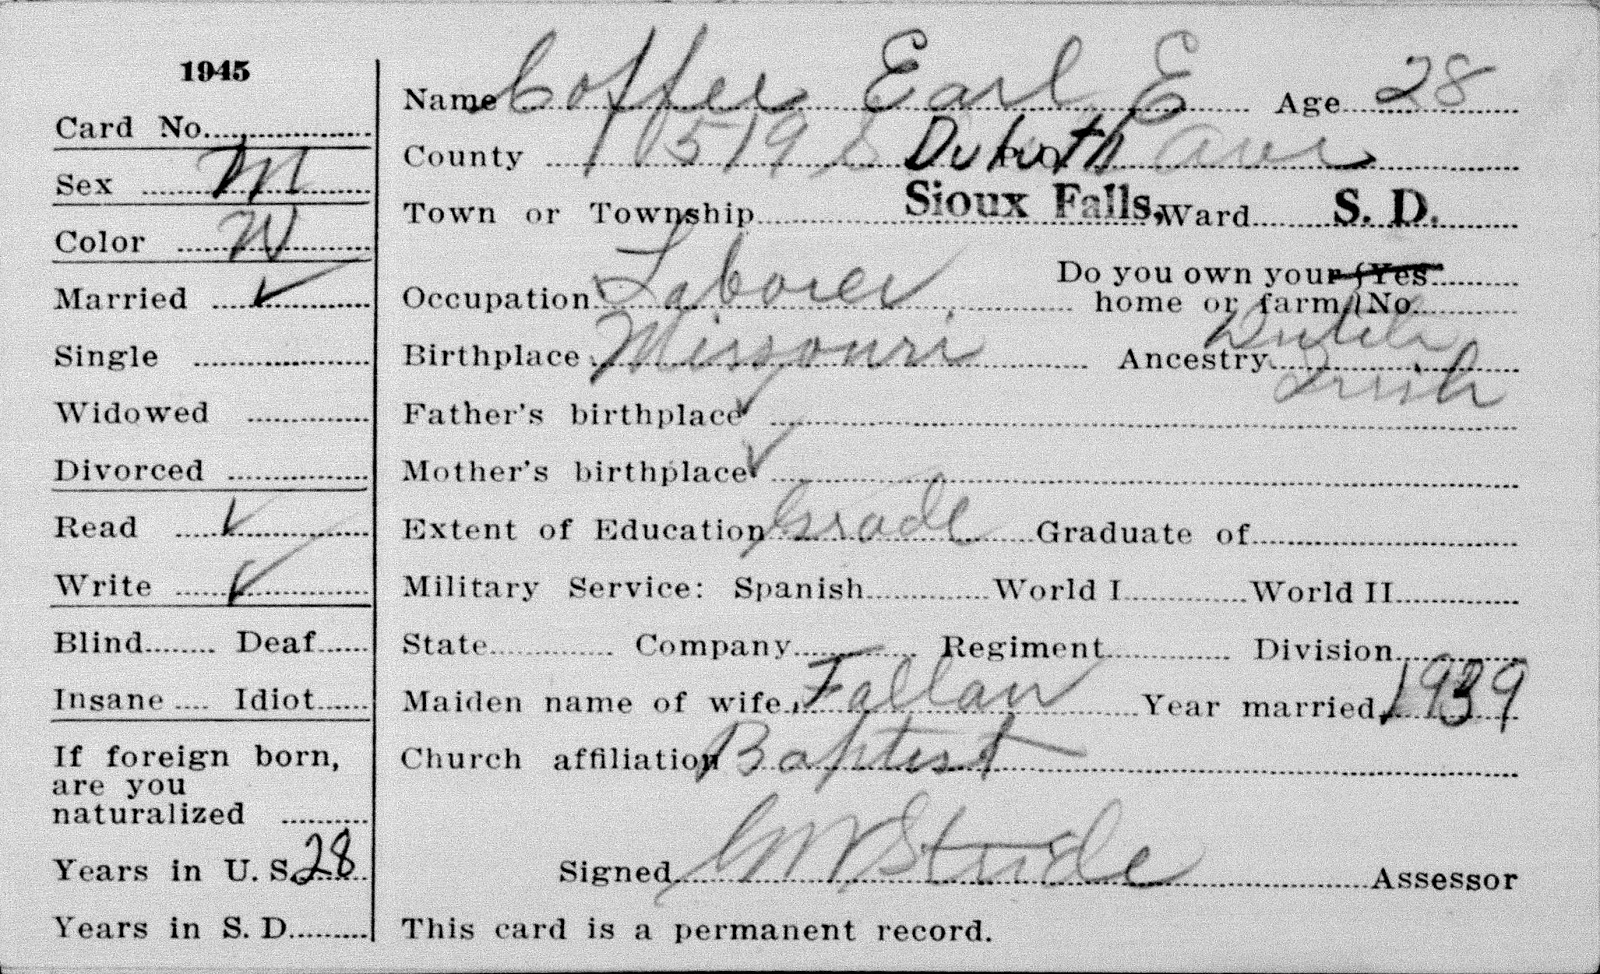 1945
Card No.
Sex M
Color W
Married ✓
Single
Widowed
Divorced
Read ✓
Write ✓
Blind Deaf
Insane Idiot
If foreign born,
are you
naturalized
Years in U. S. 28
Years in S. D.
Name Coffee Earl E Age 28
County 1519 S Duluth Ave
Town or Township Sioux Falls, Ward S. D.
Do you own your {Yes
Occupation Laborer home or farm {No
Dutch
Birthplace Missouri Ancestry Irish
Father's birthplace ✓
Mother's birthplace ✓
Extent of Education Grade Graduate of
Military Service: Spanish World I World II
State Company Regiment Division
Maiden name of wife Year married 1939
Church affiliation Baptist
Signed Assessor
This card is a permanent record.